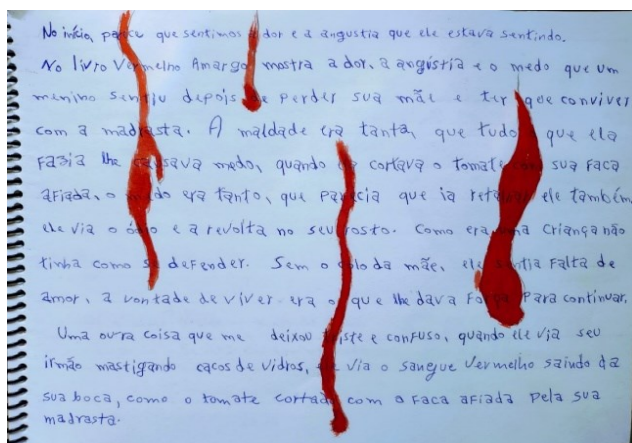 No início, parece que sentimos a dor e a angustia que ele estava sentindo.
No livro Vermelho Amargo mostra a dor, a angústia e o medo que um
menino sentiu depois de perder sua mãe e ter que conviver
com a madrasta. A maldade era tanta, que tudo o que ela
fazia lhe causava medo, quando ela cortava o tomate com sua faca
afiada, o medo era tanto, que parecia que ia retalhar ele também
ele via o ódio e a revolta no seu rosto. Como era uma criança não
tinha como se defender. Sem o colo da mãe, ele sentia falta de
amor, a vontade de viver era o que lhe dava força para continuar.
Uma oura coisa que me deixou triste e confuso, quando ele via seu
irmão mastigando cacos de vidros, ele via o sangue vermelho saindo da
sua boca, como o tomate cortado com a faca afiada pela sua
madrasta.